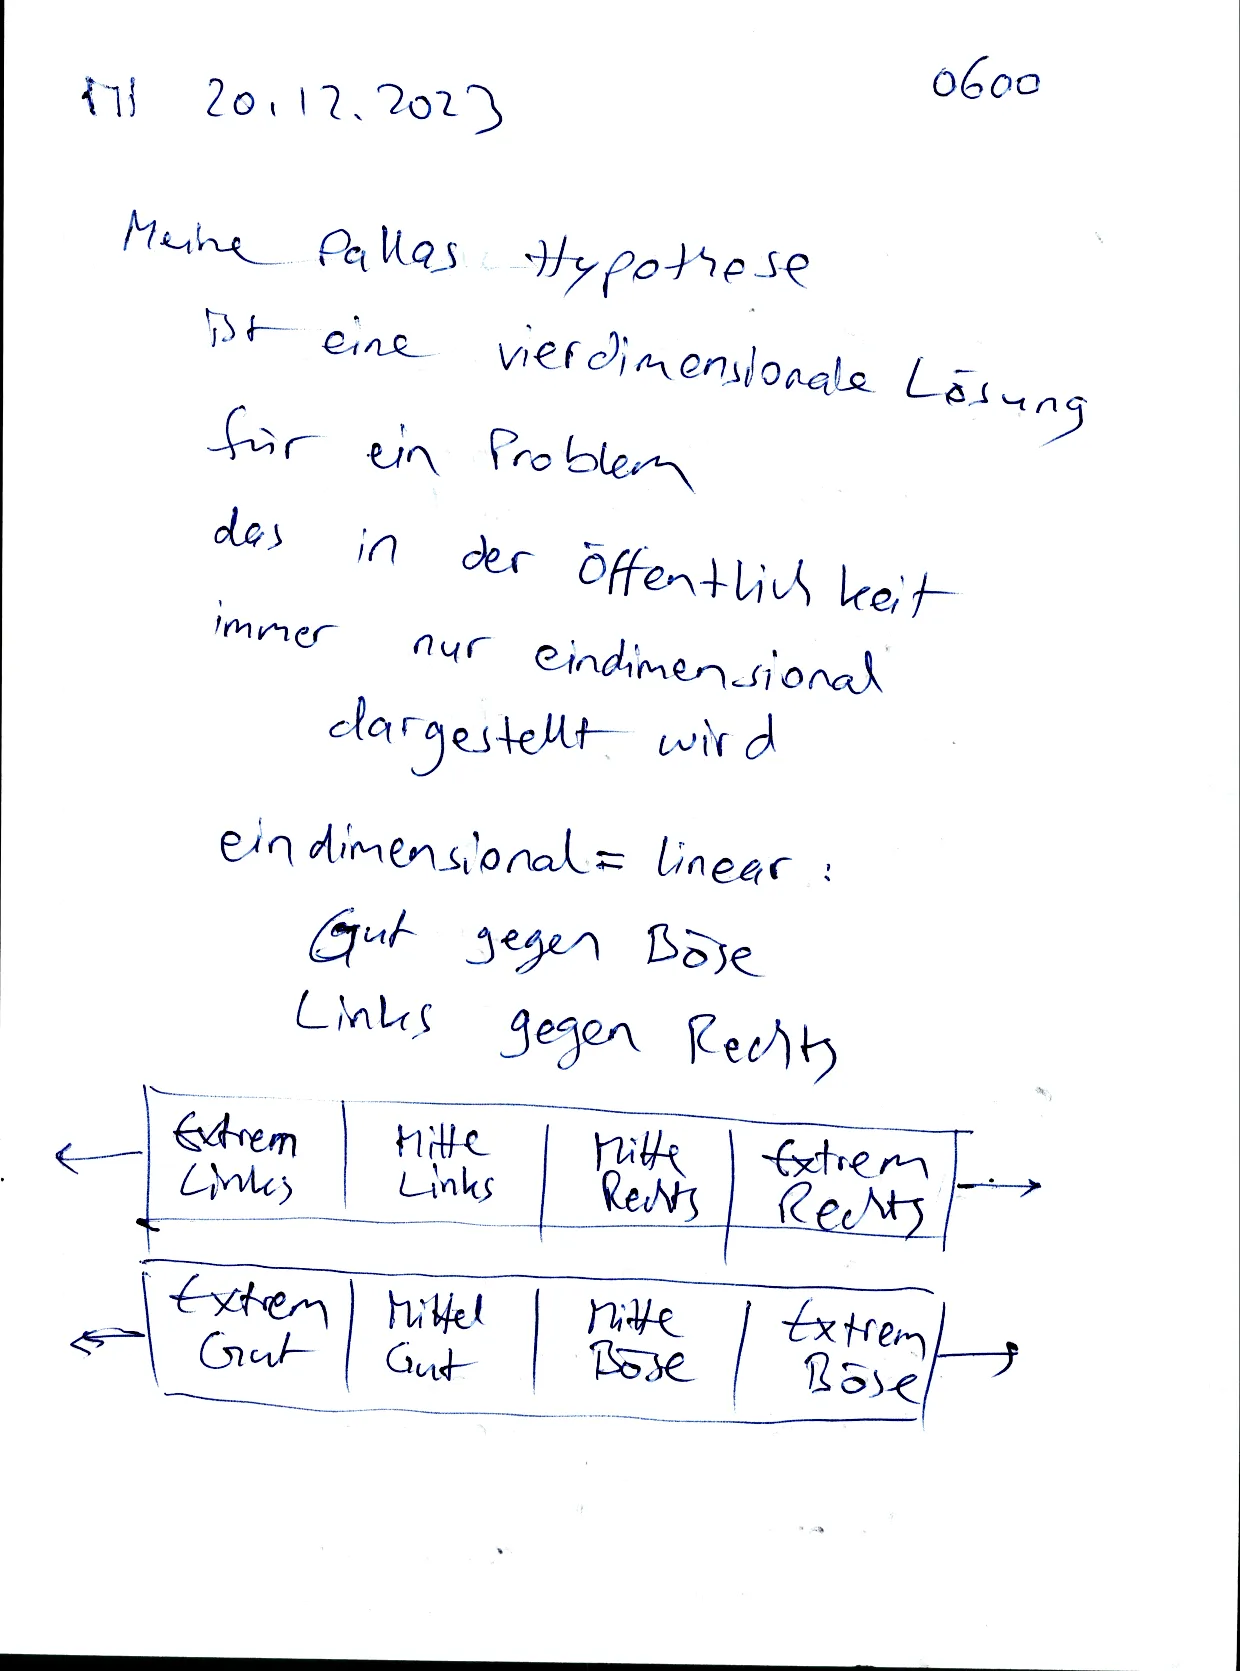 20.12.2023 0600
Meine Pallas Hypothese
ist eine vierdimensionale Lösung
für ein Problem
das in der Öffentlichkeit
immer nur eindimensional
dargestellt wird
eindimensional = linear :
Gut gegen Böse
Links gegen Rechts
Extrem Links
Mitte Links
Mitte Rechts
Extrem Rechts
Extrem Gut
Mittel Gut
Mitte Böse
Extrem Böse